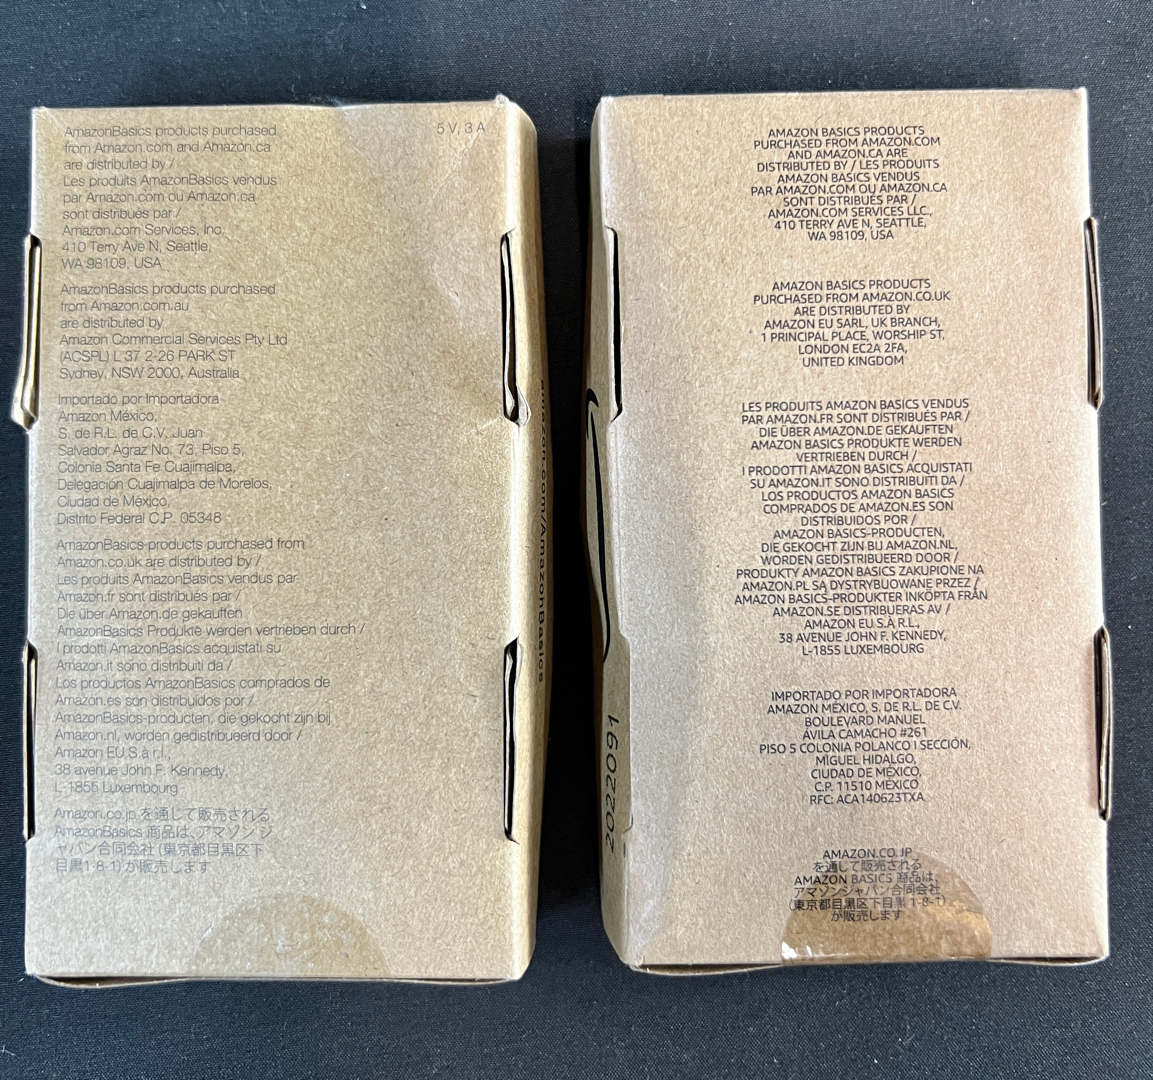 AmazonBasics products purchased
from Amazon.com and Amazon.ca
are distributed by /
Les produits AmazonBasics vendus
par Amazon.com ou Amazon.ca
sont distribués par /
Amazon.com Services, Inc.
410 Terry Ave N, Seattle,
WA 98109, USA
5 V, 3 A
AmazonBasics products purchased
from Amazon.com.au
are distributed by
Amazon Commercial Services Pty Ltd
(ACSPL) L 37 2-26 PARK ST
Sydney, NSW 2000, Australia
Importado por Importadora
Amazon México,
S. de R.L. de C.V. Juan
Salvador Agraz No. 73, Piso 5,
Colonia Santa Fe Cuajimalpa,
Delegación Cuajimalpa de Morelos,
Ciudad de México,
Distrito Federal C.P. 05348
AmazonBasics-products purchased from
Amazon.co.uk are distributed by /
Les produits AmazonBasics vendus par
Amazon.fr sont distribués par /
Die über Amazon.de gekauften
AmazonBasics Produkte werden vertrieben durch /
I prodotti AmazonBasics acquistati su
Amazon.it sono distribuiti da /
Los productos AmazonBasics comprados de
Amazon.es son distribuidos por /
AmazonBasics-producten, die gekocht zijn bij
Amazon.nl, worden gedistribueerd door /
Amazon EU S.à r.l.,
38 avenue John F. Kennedy,
L-1855 Luxembourg
Amazon.co.jp を通して販売される
AmazonBasics 商品は、アマゾン ジ
ャパン合同会社 (東京都目黒区下
目黒1-8-1) が販売します
amazon.com/AmazonBasics
2022091
AMAZON BASICS PRODUCTS
PURCHASED FROM AMAZON.COM
AND AMAZON.CA ARE
DISTRIBUTED BY / LES PRODUITS
AMAZON BASICS VENDUS
PAR AMAZON.COM OU AMAZON.CA
SONT DISTRIBUÉS PAR /
AMAZON.COM SERVICES LLC.,
410 TERRY AVE N, SEATTLE,
WA 98109, USA
AMAZON BASICS PRODUCTS
PURCHASED FROM AMAZON.CO.UK
ARE DISTRIBUTED BY
AMAZON EU SARL, UK BRANCH,
1 PRINCIPAL PLACE, WORSHIP ST,
LONDON EC2A 2FA,
UNITED KINGDOM
LES PRODUITS AMAZON BASICS VENDUS
PAR AMAZON.FR SONT DISTRIBUÉS PAR /
DIE ÜBER AMAZON.DE GEKAUFTEN
AMAZON BASICS PRODUKTE WERDEN
VERTRIEBEN DURCH /
I PRODOTTI AMAZON BASICS ACQUISTATI
SU AMAZON.IT SONO DISTRIBUITI DA /
LOS PRODUCTOS AMAZON BASICS
COMPRADOS DE AMAZON.ES SON
DISTRIBUIDOS POR /
AMAZON BASICS-PRODUCTEN,
DIE GEKOCHT ZIJN BIJ AMAZON.NL,
WORDEN GEDISTRIBUEERD DOOR /
PRODUKTY AMAZON BASICS ZAKUPIONE NA
AMAZON.PL SĄ DYSTRYBUOWANE PRZEZ /
AMAZON BASICS-PRODUKTER INKÖPTA FRÅN
AMAZON.SE DISTRIBUERAS AV /
AMAZON EU S.À R.L.,
38 AVENUE JOHN F. KENNEDY,
L-1855 LUXEMBOURG
IMPORTADO POR IMPORTADORA
AMAZON MÉXICO, S. DE R.L. DE C.V.
BOULEVARD MANUEL
ÁVILA CAMACHO #261
PISO 5 COLONIA POLANCO I SECCIÓN,
MIGUEL HIDALGO,
CIUDAD DE MÉXICO,
C.P. 11510 MÉXICO
RFC: ACA140623TXA
AMAZON.CO.JP
を通して販売される
AMAZON BASICS 商品は、
アマゾンジャパン合同会社
(東京都目黒区下目黒 1-8-1)
が販売します